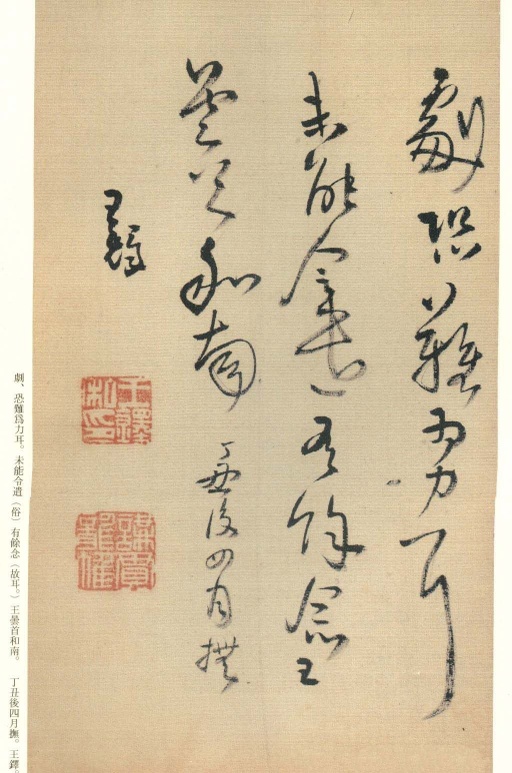 劇恐難為力耳
未能令遣有餘念王
曇首和南 丁丑後四月撫
王鐸
王鐸私印
劇、恐難爲力耳。未能令遣（俗）有餘念（故耳。）王曇首和南。 丁丑後四月撫。王鐸。